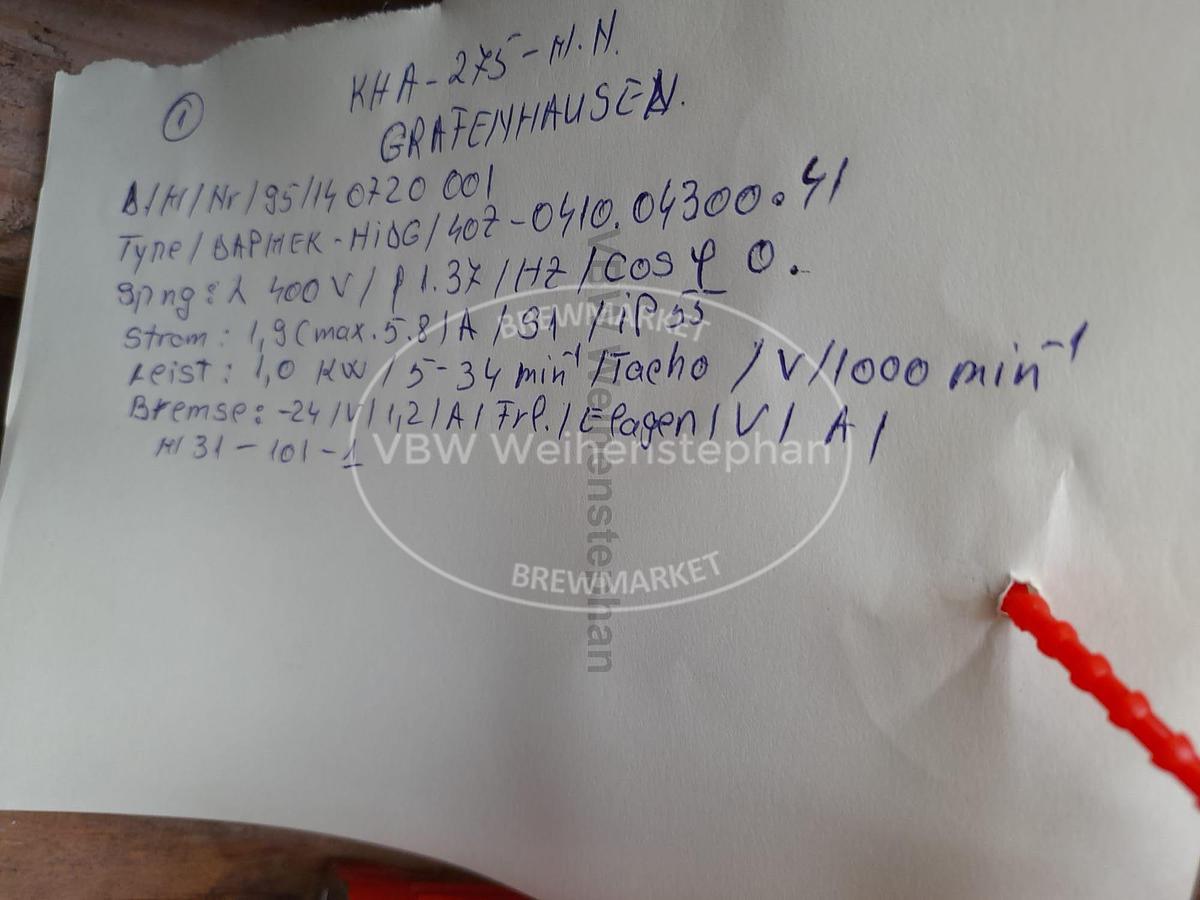 ①
KHA-275-M.N.
GRAFENHAUSEN.
A/M/Nr/95/140720 001
Type/DAPMEK-MiDG/40Z-0410.04300.41
Spng: λ 400 V/ f 1.37/HZ/Cos φ 0.
Strom: 1,9(max.5.8/A/S1/iP 55
Leist: 1,0 KW/5-34 min⁻¹/Tacho /V/1000 min⁻¹
Bremse: -24/V/1,2/A/Frl./Elagen/V/ A/
M31-101-1
VBW Weihenstephan
BREWMARKET
VBW Weihenstephan
BREWMARKET